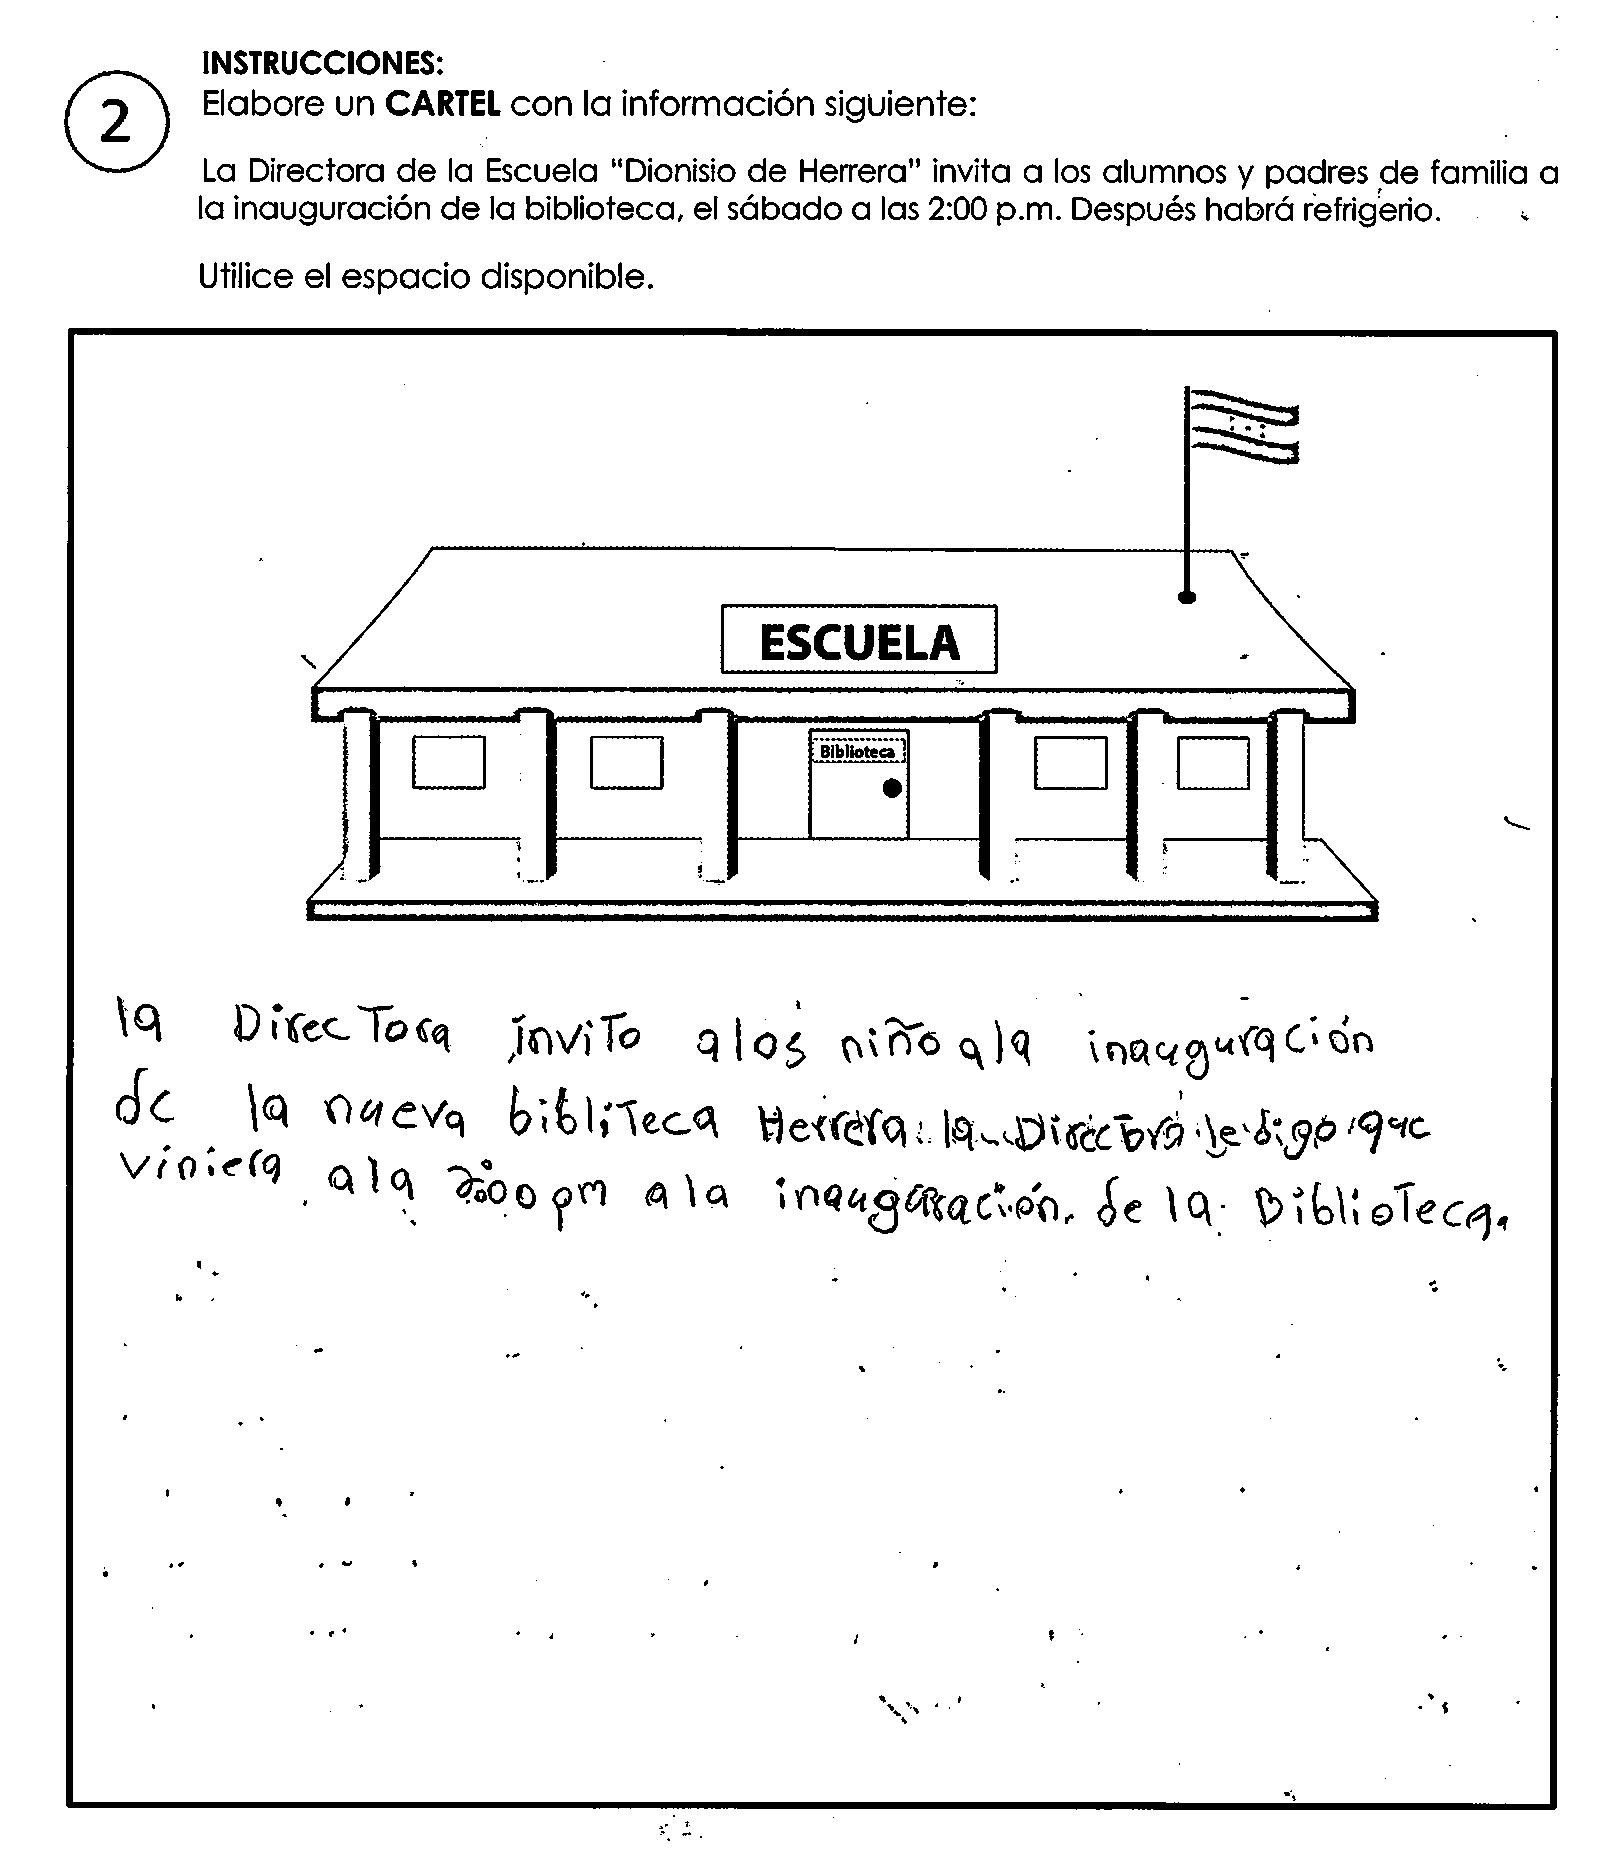 INSTRUCCIONES:
2
Elabore un CARTEL con la información siguiente:
La Directora de la Escuela "Dionisio de Herrera" invita a los alumnos y padres de familia a
la inauguración de la biblioteca, el sábado a las 2:00 p.m. Después habrá refrigerio.
Utilice el espacio disponible.
ESCUELA
Biblioteca
la Directora invito alos niño ala inauguración
de la nueva bibliteca Herrera la Directora le digo que
viniera ala 2:00 pm a la inauguración de la Biblioteca.